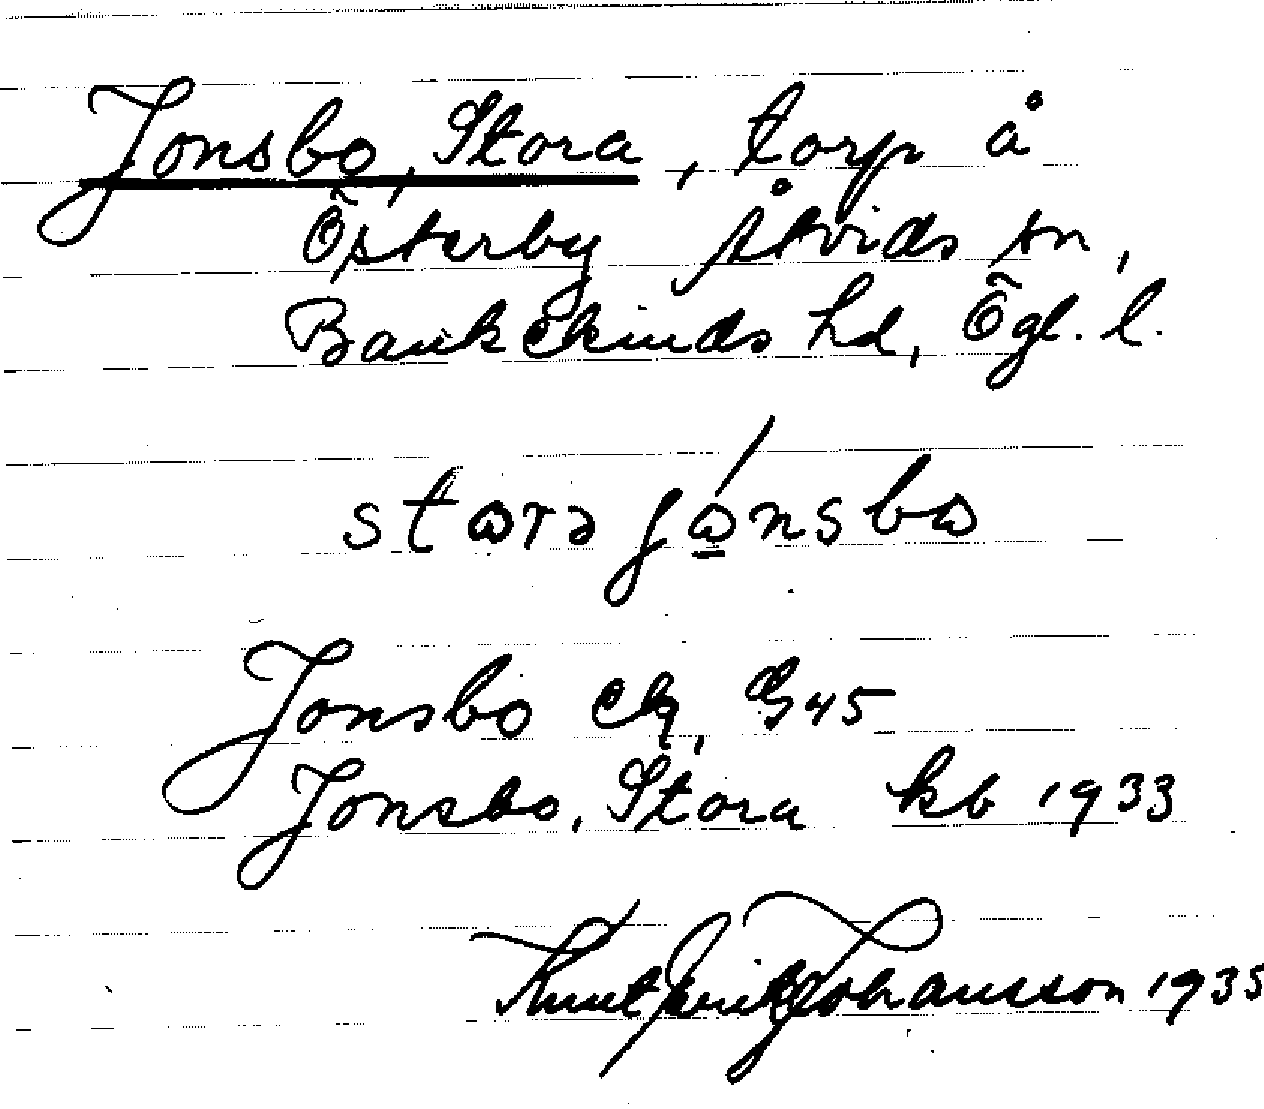 Jonsbo, Stora, torp å
Österby Åtvids sn,
Bankekinds hd, Ögl. l.
Jonsbo ek, G45
Jonsbo, Stora kb 1933
Knut Erik Johansson 1935